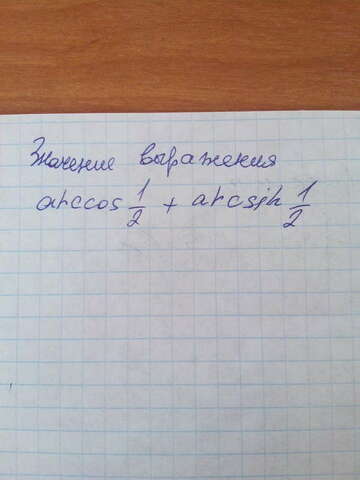 Значение выражения
arccos 1/2 + arcsin 1/2